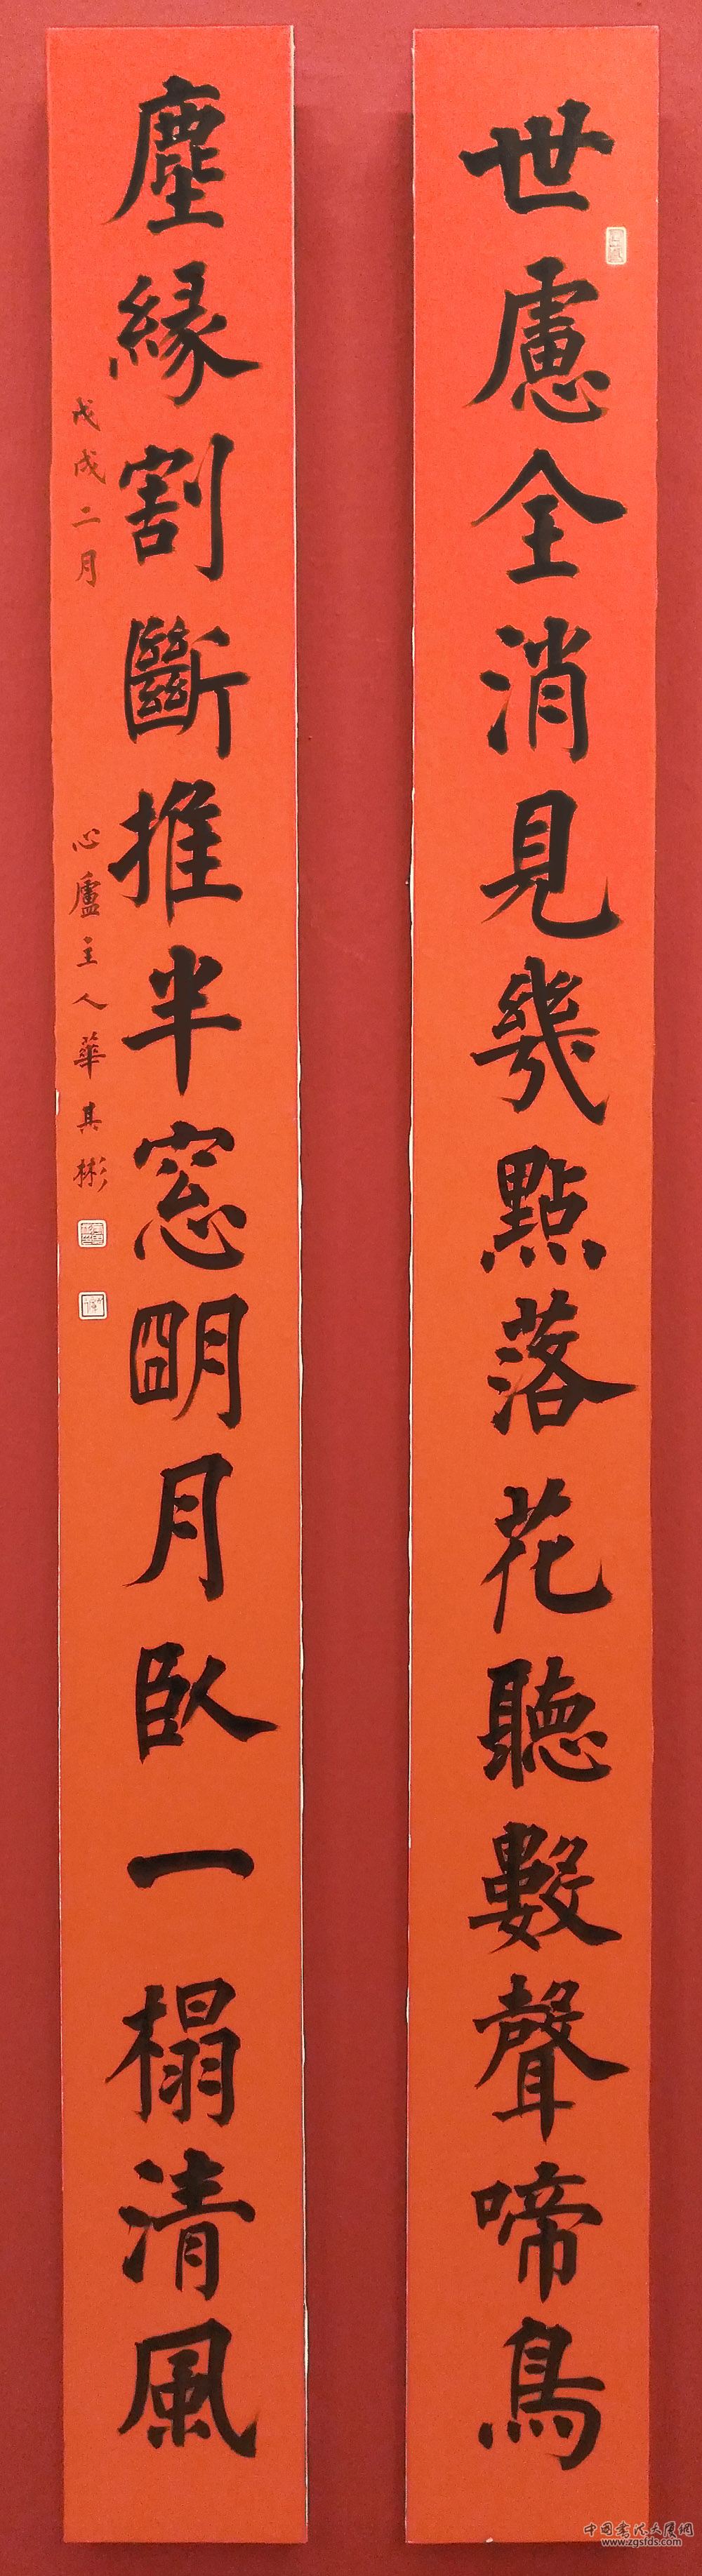 世慮全消見幾點落花聽數聲啼鳥
塵緣割斷推半窓明月臥一榻清風
戊戌二月
心廬主人華其彬
中国书法大展网
www.zgsfds.com